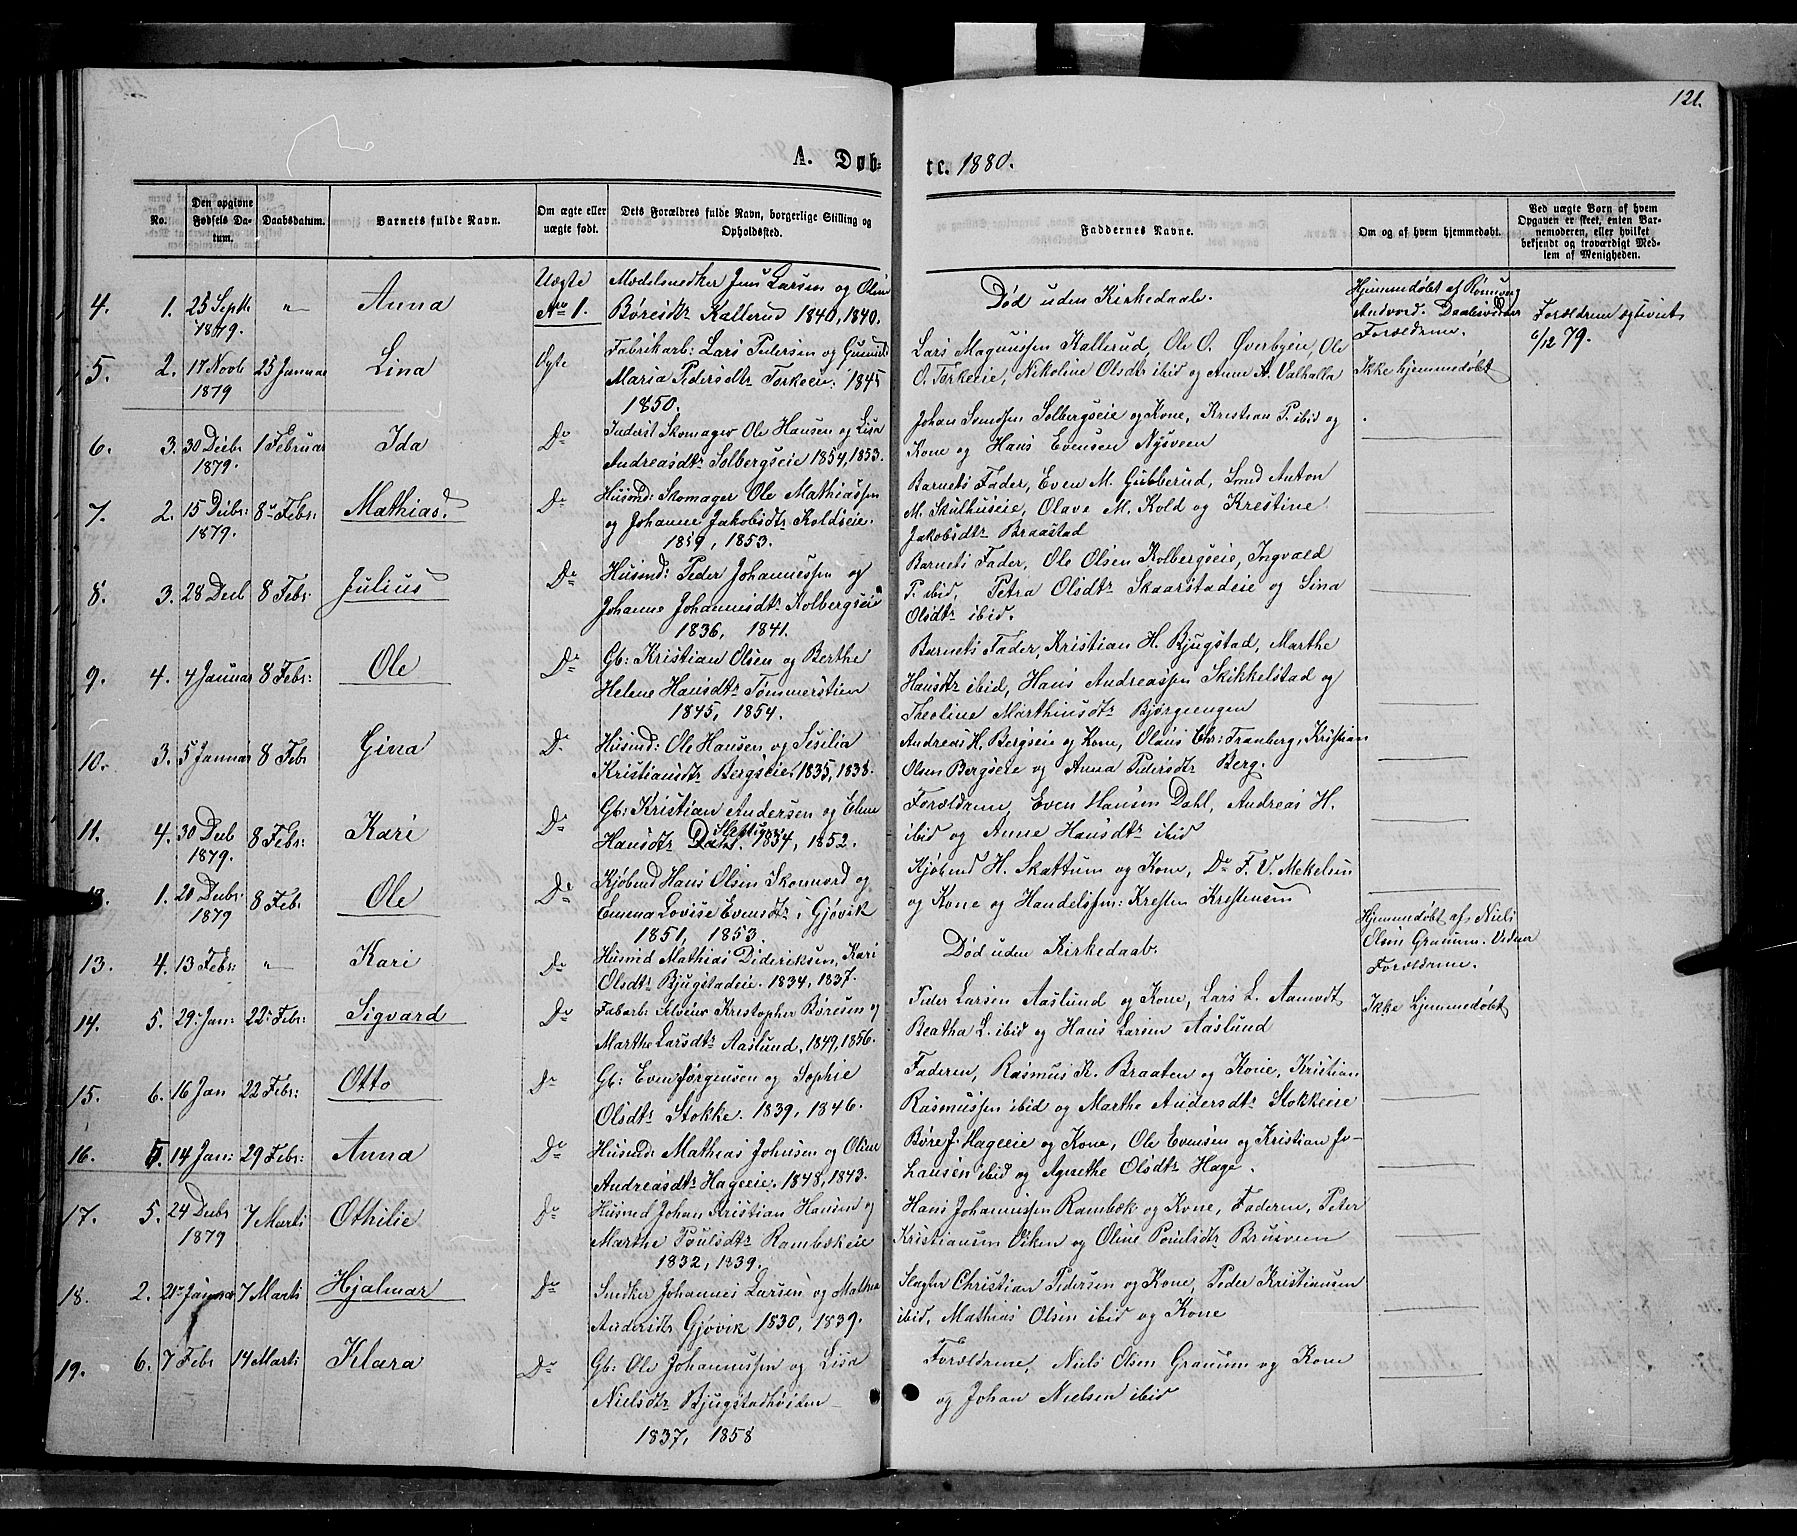 121.
A. Døb-
te. 1880.
No.
Den opgivne Fødsels Datum.
Daabsdatum.
Barnets fulde Navn.
Om ægte eller uægte født.
Dets Forældres fulde Navn, borgerlige Stilling og Opholdssted.
Faddernes Navne.
Om og af hvem hjemmedøbt.
Ved uægte Børn af hvem Opgaven er skeet, enten Barnemoderen, eller hvilket bekjendt og troværdigt Medlem af Menigheden.
4. 1. 25 Septbr 1879. " Anna Uægte No 1.
Modelsnedker Jens Larsen og Oline
Børesdtr Kallerud 1840, 1840.
Død uden Kirkedaab.
Hjemmedøbt af Ronnaug
Andvord. Daabsvidner
Forældrene.
Forældrene ægteviet
6/12 79.
5. 2. 17 Novb 1879 25 Januar Lina Ægte
Fabrikarb: Lars Pedersen og Gunnild
Maria Pedersdtr Torkeeie. 1845
1850.
Lars Magnussen Kallerud, Ole O. Øverbyeie, Ole
O. Torkeeie, Nikoline Olsdtr ibid og Anne A. Valhalla
Ikke hjemmedøbt
6. 3. 30 Debr 1879. 1 Februar Ida Do
Inderst Skomager Ole Hansen og Lisa
Andreasdtr Solbergseie 1854, 1853.
Johan Svendsen Solbergseie og Kone, Kristian P. ibid og
Kone og Hans Evensen Nysveen
7. 2. 15 Debr: 1879. 8 Febr: Mathias. Do
Husmd: Skomager Ole Mathiassen
og Johanne Jakobsdtr Koldseie.
1859, 1853.
Barnets Fader, Even M. Gubberud, Smed Anton
M. Skulhuseie, Olave M. Kold og Krestine
Jakobsdtr Braastad
8. 3. 28 Deb 8 Febr Julius Do
Husmd: Peder Johannessen og
Johanne Johannesdtr Kolbergseie
1836, 1841.
Barnets Fader, Ole Olsen Kolbergseie, Ingvald
P. ibid, Petra Olsdtr Skaarstadeie og Lina
Olsdtr ibid.
9. 4. 4 Januar 8 Febr: Ole Do
Gb: Kristian Olsen og Berthe
Helene Hansdtr Tømmerstien
1845, 1854.
Barnets Fader, Kristian H. Bjugstad, Marthe
Hansdtr ibid, Hans Andreassen Skikkelstad og
Theoline Marthinsdtr Bjørgeengen
10. 3. 5 Januar 8 Feb Gina Do
Husmd: Ole Hansen og Sesilia
Kristiansdtr Bergseie. 1835, 1838.
Andreas H. Bergseie og Kone, Olaus Chr: Tranberg, Kristian
Olsen Bergseie og Anna Pedersdtr Berg.
11. 4. 30 Deb 1879. 8 Febr: Kari Do
Gb: Kristian Andersen og Eline
Hansdtr Dahl. 1834, 1852.
Forældrene, Even Hansen Dahl, Andreas H.
ibid og Anne Hansdtr ibid
12. 1. 20 Debr 1879 8 Feb. Ole Do
Kjøbmd Hans Olsen Skonnord og
Emma Lovise Evensdtr i Gjøvik
1851, 1853.
Kjøbmd H. Skattum og Kone, Do F. V. Mekelsen
og Kone og Handelsfm: Kresten Krestensen
13. 4. 13 Febr: " Kari Do
Husmd Mathias Dideriksen, Kari
Olsdtr Bjugstadeie. 1834, 1837.
Død uden Kirkedaab.
Hjemmedøbt af Niels
Olsen Graunm. Vidner
Forældrene.
14. 5. 29 Jan: 22 Febr: Sigvard Do
Fabarb: Kristopher Børesen og
Marthe Larsdtr Aaslund. 1849, 1856.
Peder Larsen Aaslund og Kone, Lars L. Aamodt
Beatha L. ibid og Hans Larsen Aaslund
Ikke hjemmedøbt
15. 6. 16 Jan 22 Febr: Otto Do
Gb: Even Jørgensen og Sophie
Olsdtr Stokke. 1839, 1846.
Faderen, Rasmus K. Braaten og Kone, Kristian
Rasmussen ibid og Marthe Andersdtr Stokkeeie
16. 5. 14 Jan: 29 Febr: Anna Do
Husmd: Mathias Johnsen og Oline
Andreasdtr Hageeie. 1848, 1843.
Børe J. Hageeie og Kone, Ole Evensen og Kristian Jo-
hansen ibid og Agnethe Olsdtr Hage.
17. 5. 24 Debr 1879 7 Marts Othilie Do
Husmd Johan Kristian Hansen og
Marthe Poulsdtr Rambækeie
1832, 1839.
Hans Johannessen Rambæk og Kone, Faderen, Peter
Kristiansen Viken og Oline Poulsdtr Brusveen
18. 2. 21 Januar 7 Marts Hjalmar Do
Snedker Johannes Larsen og Mathea
Andersdtr Gjøvik 1830, 1839.
Slagter Christian Pedersen og Kone, Peder Kristiansen
ibid, Mathias Olsen ibid og Kone
19. 6. 7 Febr 14 Marts Klara Do
Gb: Ole Johannessen og Lisa
Nielsdtr Bjugstadhøiden
1837, 1858
Forældrene, Niels Olsen Graunm og Kone
og Johan Nielsen ibid